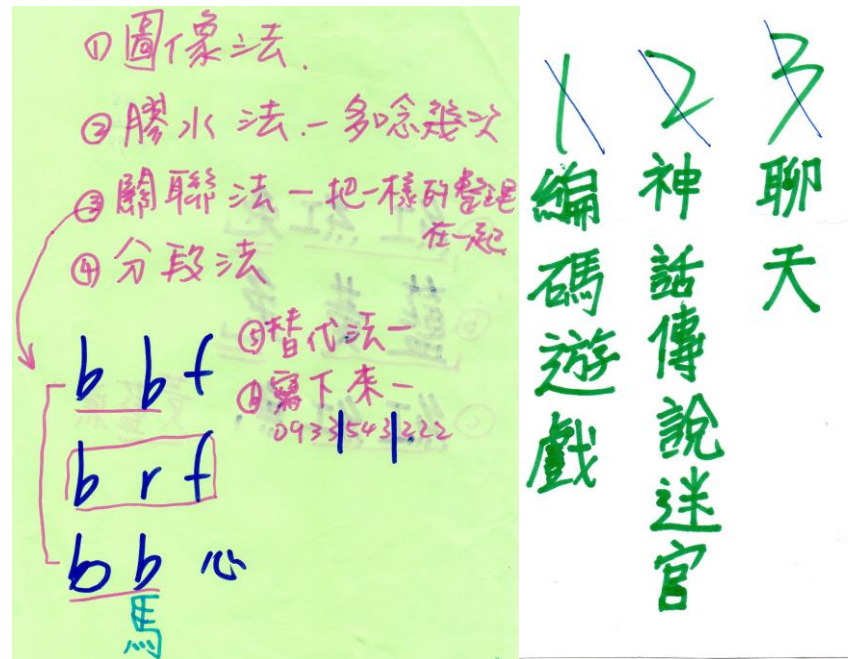 ①圖像法.
②膠水法.－多唸幾次
③關聯法－把一樣的整理
在一起
④分段法
⑤替代法－
⑥寫下來－
0933|543|222
b b f
b r f
b b 心
馬
1 編碼遊戲
2 神話傳說迷宮
3 聊天